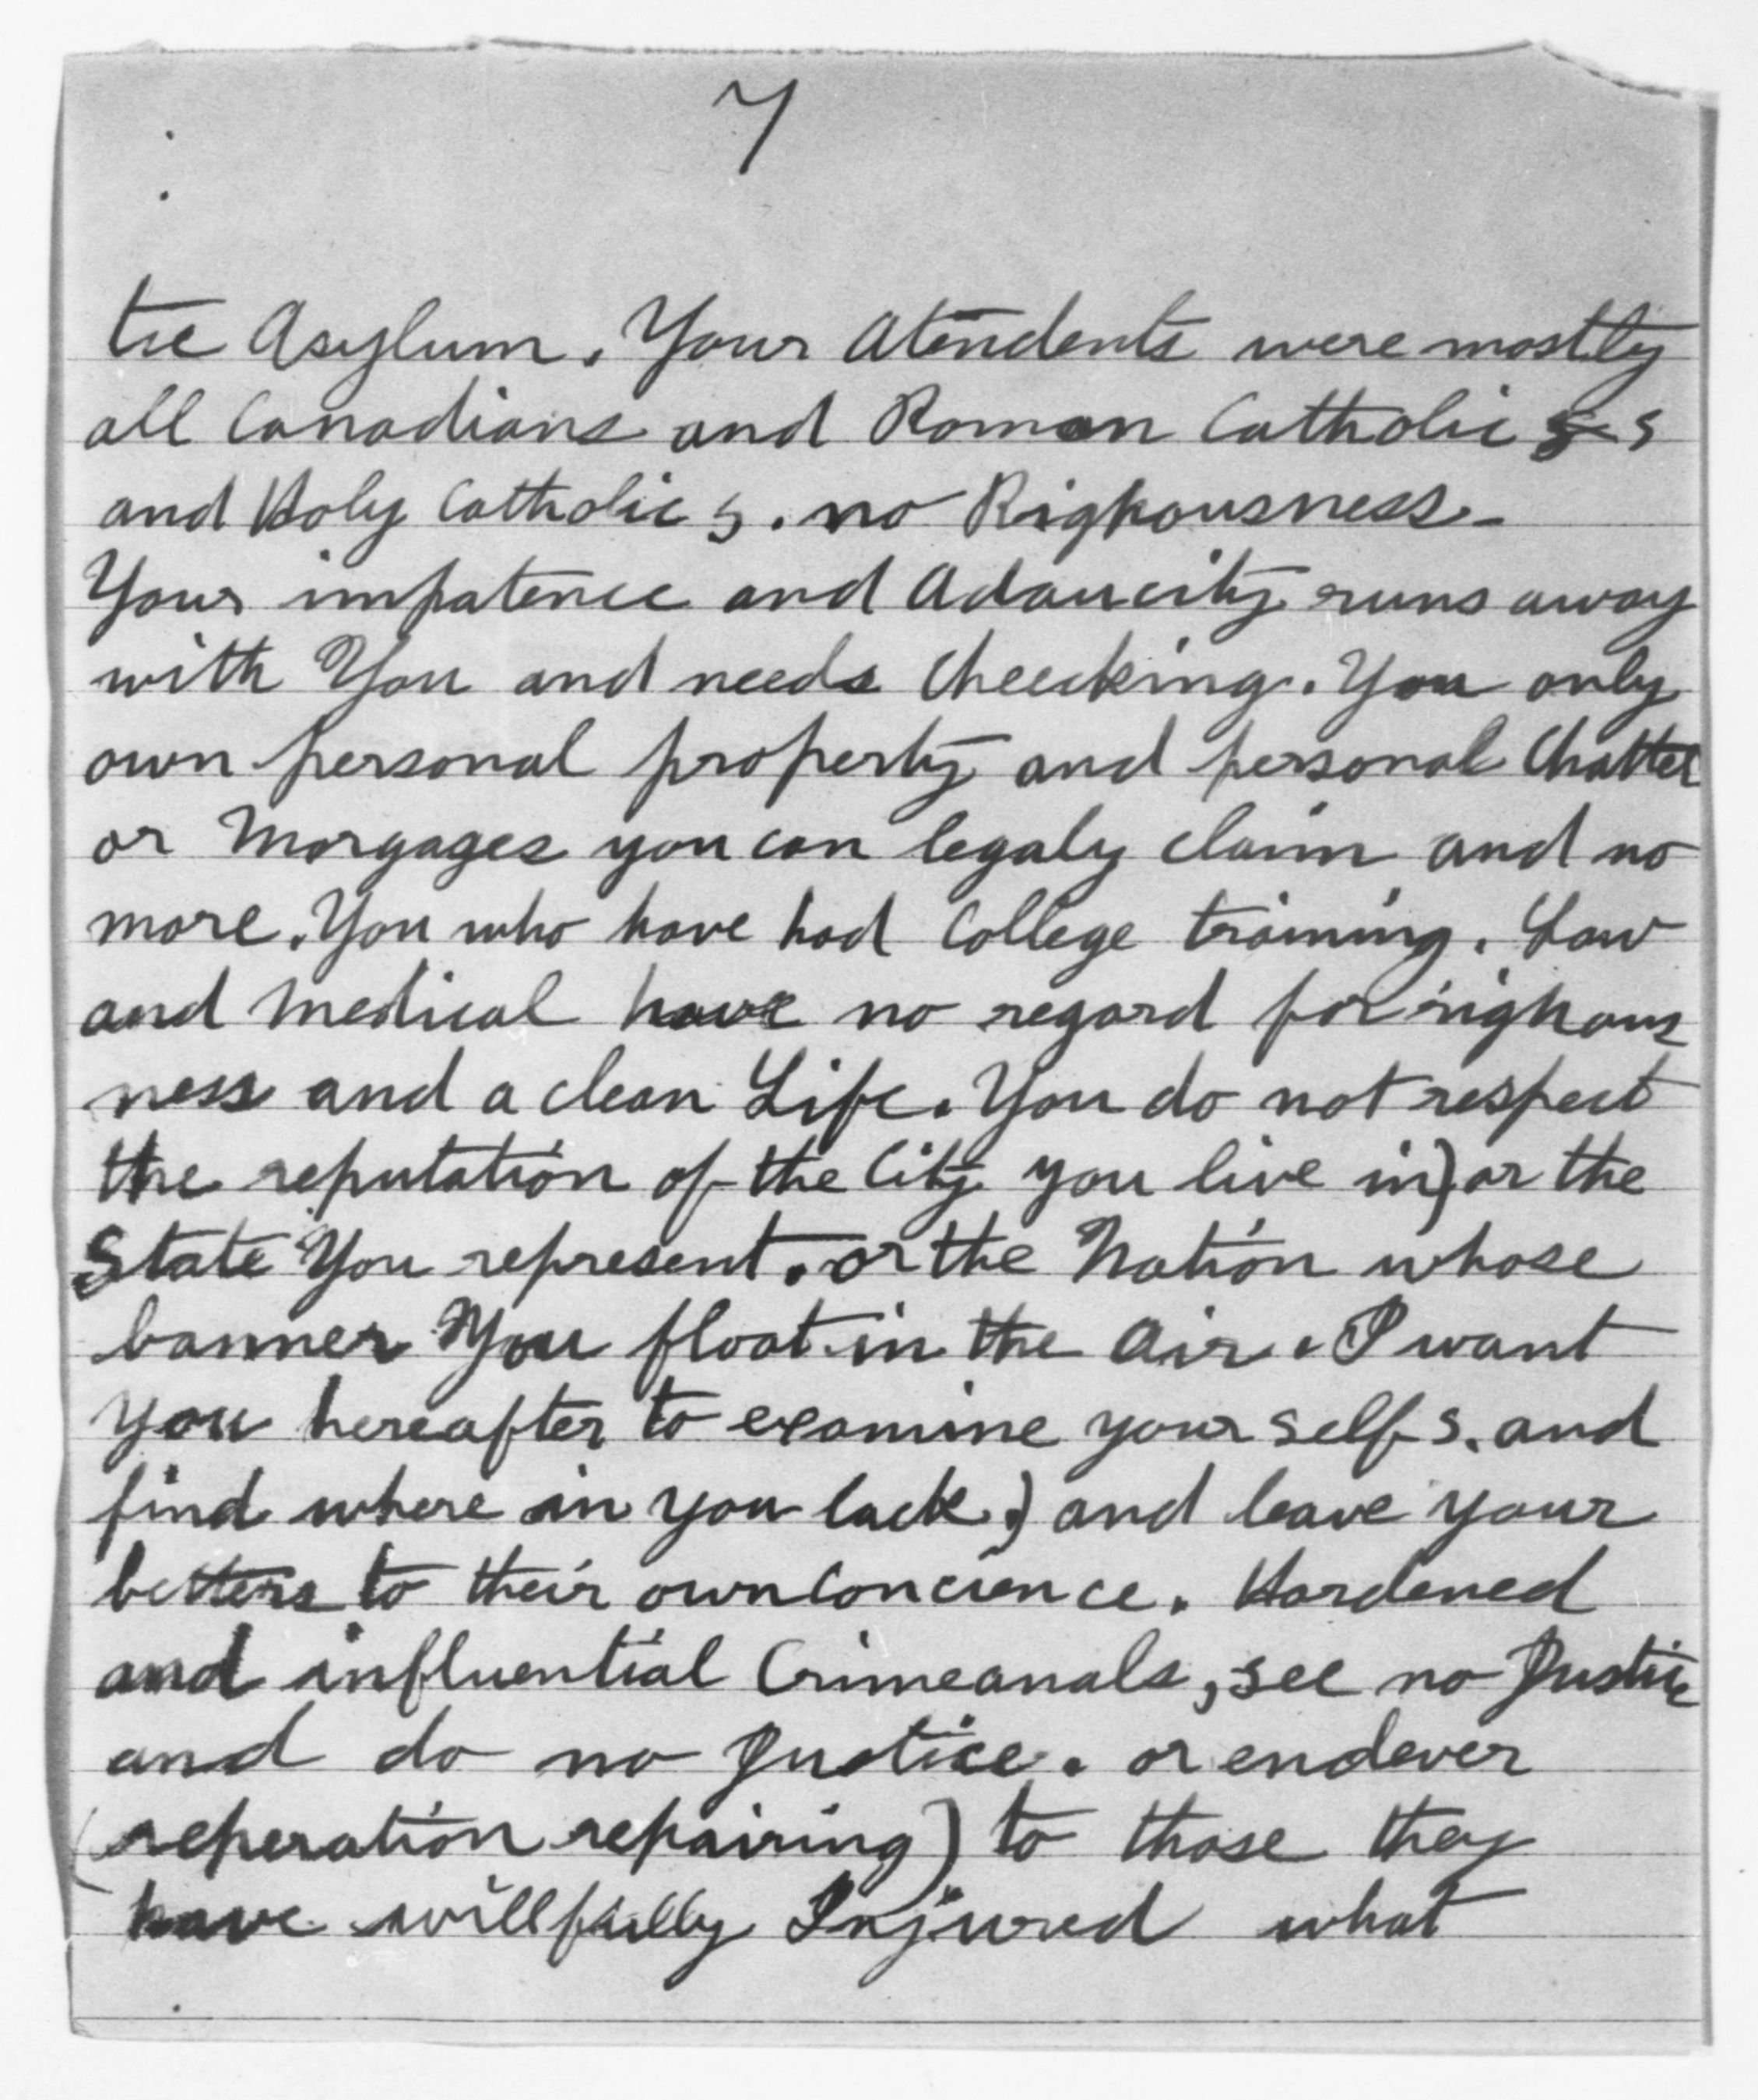 7
tic Asylum. Your Atendents were mostly
all Canadians and Roman Catholic s
and Holy Catholic s. no Righousness-
Your impatence and Adaucity runs away
with You and needs Checking. You only
own personal property and personal Chattel
or Morgages you can legaly claim and no
more. You who have had College training. Law
and Medical have no regard for righous
ness and a clean Life. You do not respect
the reputation of the City you live in) or the
State You represent. or the Nation whose
banner You float in the Air. I want
you hereafter to examine your selfs. and
find where in you lack.) and leave your
betters to their own Concience. Hardened
and influential Crimeanals, see no Justice
and do no Justice. or endever
(reperation repairing) to those they
have willfully Injured what